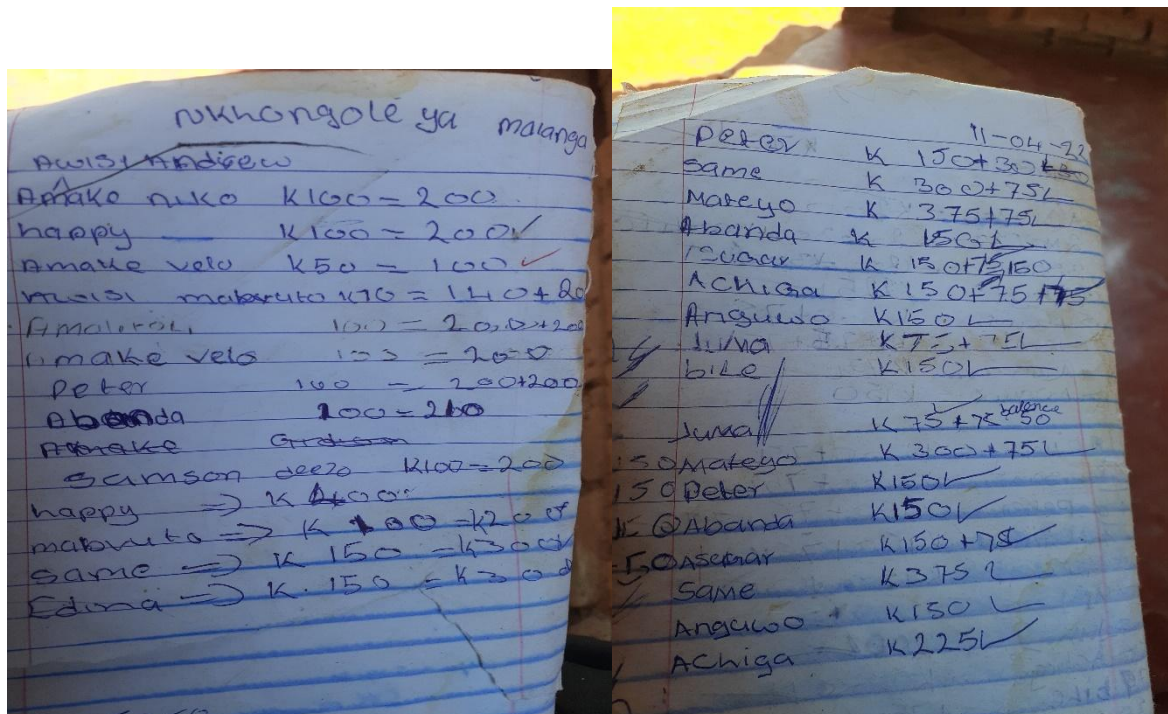 nkhongole ya malanga
Awisi Andrew
Amake niko K100 = 200
happy — K100 = 200 ✓
Amake velo K50 = 100 ✓
Awisi mabvuto K70 = 140 + 20
100 = 200+200
Amake velo 100 = 200
Peter 100 = 200+200
Abanda 100 = 200
Amake
Samson deezo K100 = 200
happy => K
mabvuto => K 100 = K200
Same => K 150 = K300
Edina => K. 150 = K300
11-04-22
Peter K 150+30
Same K 300+75
Mateyo K 375+75
Abanda K 150
K 150+75, 150
Achiga K 150+75+75
Anguwo K150
Juma K75+75
bile K150
Juma K75+75 balence 50
50 Mateyo K300+75
150 Peter K150 ✓
Abanda K150 ✓
Asemar K150+75 ✓
Same K375
Anguwo K150 ✓
Achiga K225 ✓